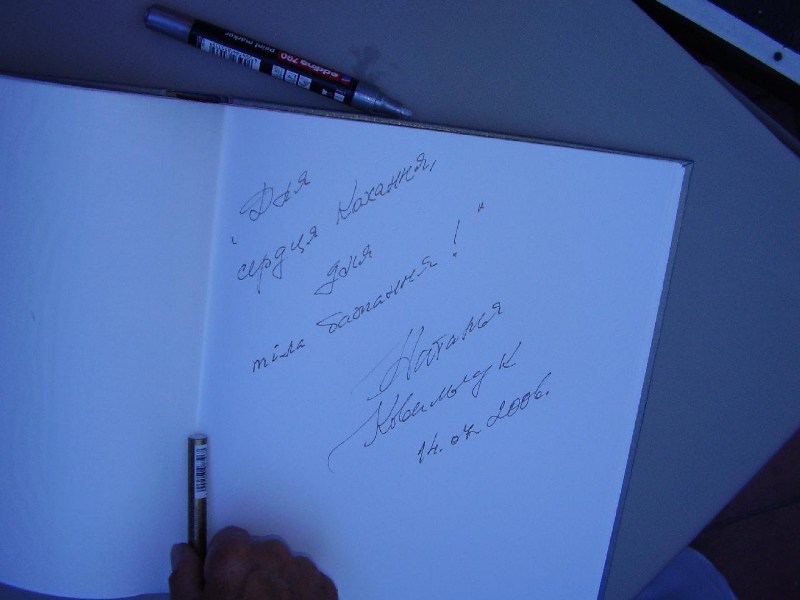 edding 790 paint marker
" Для
серця Кохання,
для
тіла бажання ! "
Наталья
14.07 2006.